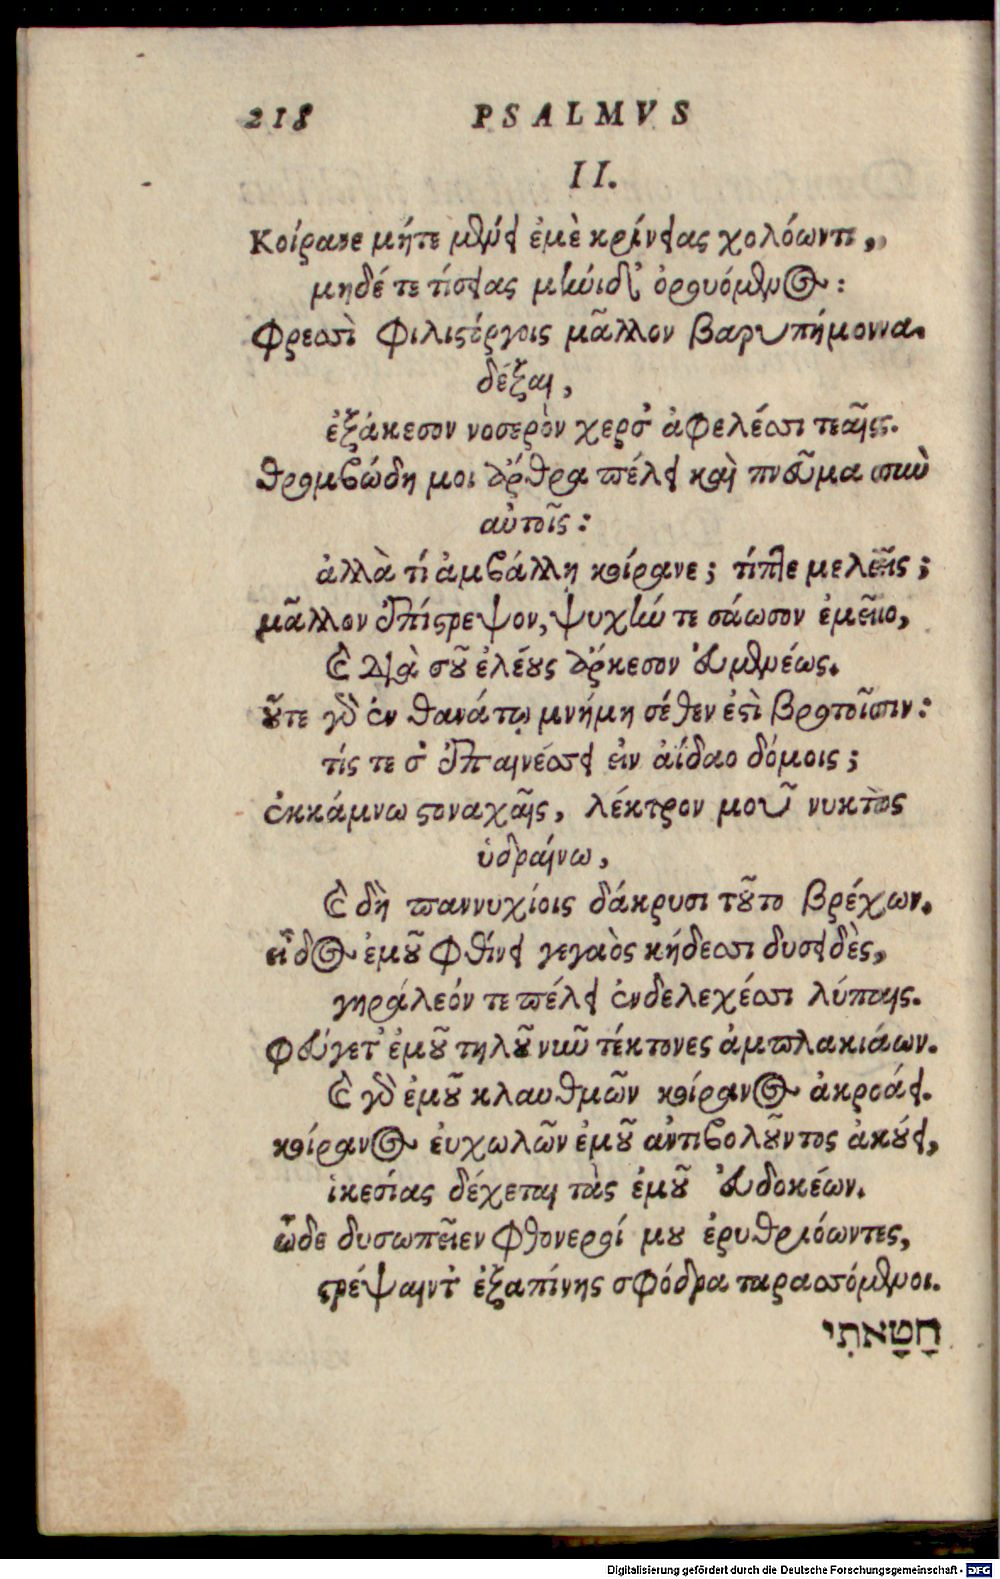 218 PSALMVS
II.
Κοίρανε μήτε μένει ἐμὲ κρίνειας χολόωντι,
μηδέ τε τίσειας μώιδι ὀργυόμενος:
Φρεσὶ φιλιστόργοις μᾶλλον βαρυπήμονα
δέξαι,
ἐξάκεσον νοσερὸν χερσ' ἀφελέσι τεαῖς.
θρομβώδη μοι ἄρθρα πέλει καὶ πνεῦμα σὺν
αὐτοῖς:
ἀλλὰ τί ἀμβάλλῃ κοίρανε; τίπτε μελεῖς;
μᾶλλον ἐπίστρεψον, ψυχήν τε σάωσον ἐμεῖο,
καὶ διὰ σοῦ ἐλέους ἄρκεσον εὐμενέως.
οὔτε γὰρ ἐν θανάτῳ μνήμη σέθεν ἐστὶ βροτοῖσιν:
τίς τε σ' ἐπαινέσει εἰν ἀΐδαο δόμοις;
ἐκκάμνω στοναχαῖς, λέκτρον μοῦ νυκτὸς
ὑδραίνω,
καὶ δὴ παννυχίοις δάκρυσι τοῦτο βρέχων.
εἶδος ἐμοῦ φθίνει γεγαὸς κήδεσι δυσειδὲς,
γηράλεόν τε πέλει ἐνδελεχέσι λύπαις.
Φεύγετ' ἐμοῦ τηλοῦ νῦν τέκτονες ἀμπλακιάων.
καὶ γὰρ ἐμοῦ κλαυθμῶν κοίρανος ἀκροάει.
κοίρανος εὐχωλῶν ἐμοῦ ἀντιβολοῦντος ἀκούει,
ἱκεσίας δέχεται τὰς ἐμοῦ εὐδοκέων.
ὧδε δυσωπεῖεν φθονεροί μου ἐρυθριόωντες,
στρέψαιντ' ἐξαπίνης σφόδρα ταρασσόμενοι.
חָטָאתִי
Digitalisierung gefördert durch die Deutsche Forschungsgemeinschaft - DFG